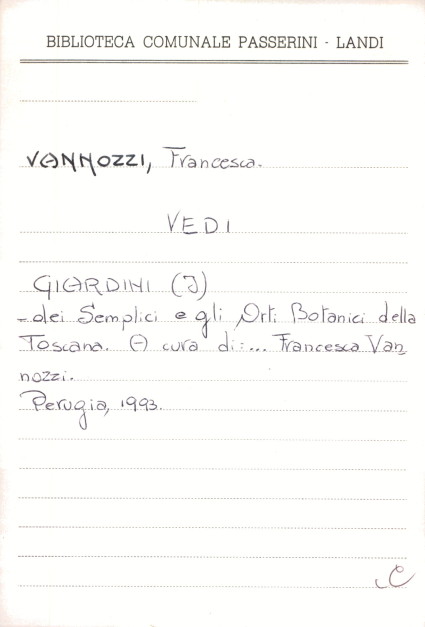 BIBLIOTECA COMUNALE PASSERINI - LANDI
VANNOZZI, Francesca.
VEDI
GIARDINI (I)
dei Semplici e gli Orti Botanici della
Toscana. A cura di:... Francesca Van
nozzi.
Perugia, 1993.
C